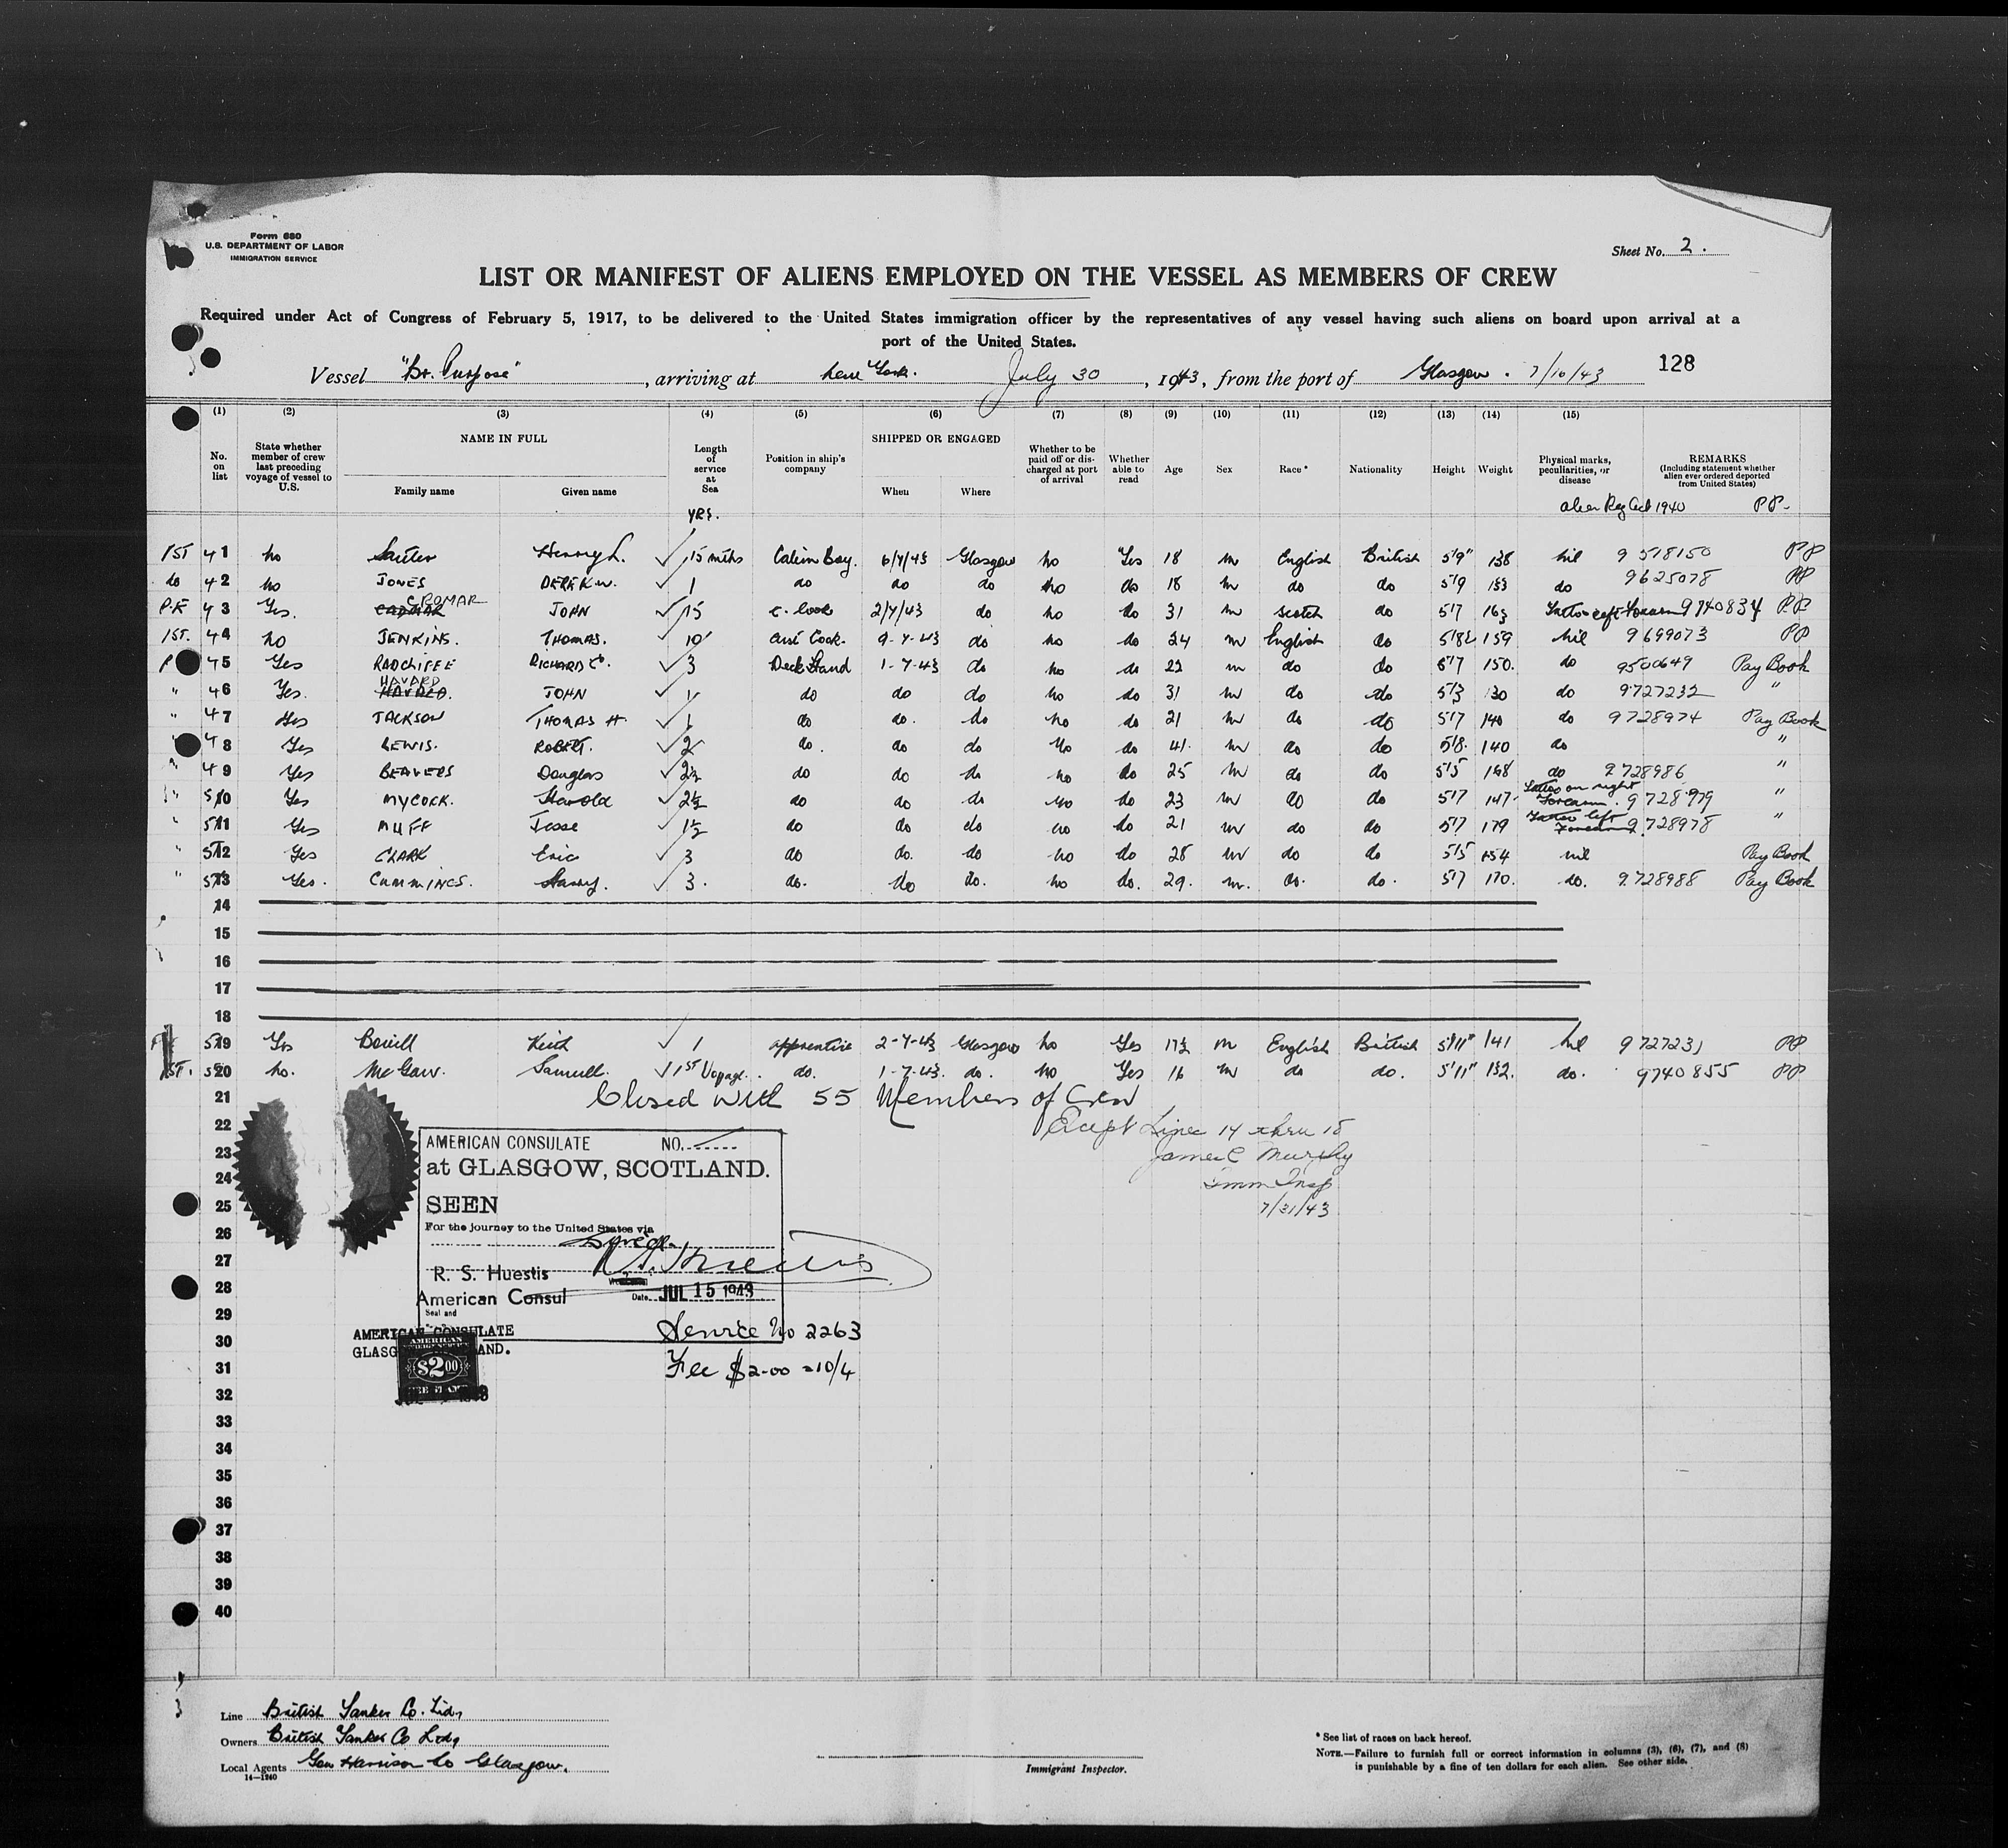 Form 680
U.S. DEPARTMENT OF LABOR
IMMIGRATION SERVICE
Sheet No. 2.
LIST OR MANIFEST OF ALIENS EMPLOYED ON THE VESSEL AS MEMBERS OF CREW
Required under Act of Congress of February 5, 1917, to be delivered to the United States immigration officer by the representatives of any vessel having such aliens on board upon arrival at a
port of the United States.
Vessel "Br. Purpose", arriving at New York. July 30, 1943, from the port of Glasgow. 7/16/43 128
(1) (2) (3) (4) (5) (6) (7) (8) (9) (10) (11) (12) (13) (14) (15)
No. on list
State whether member of crew last preceding voyage of vessel to U.S.
NAME IN FULL
Family name Given name
Length of service at Sea
YRS.
Position in ship's company
SHIPPED OR ENGAGED
When Where
Whether to be paid off or discharged at port of arrival
Whether able to read
Age Sex Race* Nationality Height Weight
Physical marks, peculiarities, or disease
REMARKS
(Including statement whether alien ever ordered deported from United States)
Alien Reg Act 1940 PP.
1ST 41 no Henry L. 15 mths Cabin Boy. 6/7/43 Glasgow no Yes 18 m English British 5'9" 138 nil 9518150 PP
do 42 no JONES DEREK W. 1 do do do no do 18 m do do 5'9 133 do 9625078 PP
P.F 43 Yes. CROMAR JOHN 15 2/7/43 do no do 31 m Scotch do 5'7 163 Tattoo left forearm 9740834 PP
1ST. 44 no JENKINS. THOMAS. 10 Asst Cook. 9-7-43 do no do 24 m English do 5'8½ 159 nil 9699073 PP
P 45 Yes RADCLIFFE RICHARD 3 Deck Hand 1-7-43 do no do 22 m do do 5'7 150. do 9500649 Pay Book
" 46 Yes. HAVARD JOHN do do do no do 31 m do do 5'3 130 do 9727232 "
" 47 Yes JACKSON THOMAS H. do do. do no do 21 m do do 5'7 140 do 9728974 Pay Book
48 Yes LEWIS. ROBERT. 2 do. do do no do 41. m do do 5'8. 140 do "
" 49 Yes BEAVERS Douglas 2½ do do do no do 25 m do do 5'5 168 do 9728986 "
" 50 Yes MYCOCK. Harold 2½ do do do no do 23 m do do 5'7 147. Tattoo on right Forearm. 9728979 "
" 51 Yes MUFF Jesse 1½ do do do no do 21 m do do 5'7 179 Tattoo left Forearm 9728978 "
" 52 Yes CLARK Eric 3 do do. do no do 28 m do do 5'5 154 nil Pay Book
" 53 Yes. CUMMINGS. Harry. 3. do. do do. no do. 29. m. do. do. 5'7 170. do. 9728988 Pay Book
14
15
16
17
18
59 Yes Keith 1 apprentice 2-7-43 Glasgow no Yes 17½ m English British 5'11" 141 nil 9727231 PP
1ST. 520 no. McGaw. Samuel. 1st Voyage. do. 1-7-43. do. no Yes 16 m do do. 5'11" 132. do. 9740855 PP
21 Closed with 55 Members of Crew
22 Except Lines 14 thru 18
23 James C Murphy
24 Imm Insp
25 7/31/43
AMERICAN CONSULATE NO.
at GLASGOW, SCOTLAND.
SEEN
For the journey to the United States via
26
27
R. S. Huestis
28
American Consul Date JUL 15 1943
Seal and
29
AMERICAN CONSULATE
GLASGOW, SCOTLAND.
Service No 2263
30
AMERICAN
$2.00
FEE STAMP
Fee $2.00 = 10/4
31
32
33
34
35
36
37
38
39
40
Line British Tanker Co. Ltd,
Owners British Tanker Co Ltd,
Local Agents Geo Harrison Co Glasgow.
14—1240
Immigrant Inspector.
* See list of races on back hereof.
NOTE.—Failure to furnish full or correct information in columns (3), (6), (7), and (8)
is punishable by a fine of ten dollars for each alien. See other side.